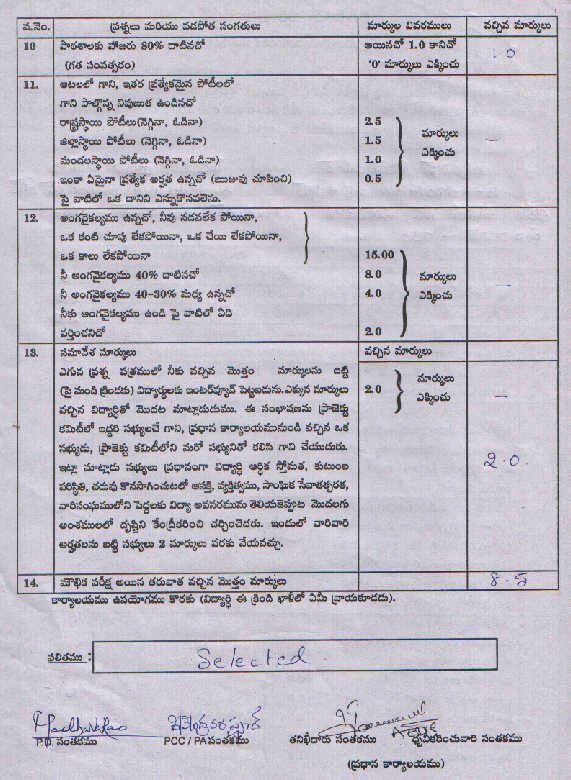 వ.నెం. ప్రశ్నలు మరియు వడపోత సంగతులు మార్కుల వివరములు వచ్చిన మార్కులు
10 పాఠశాలకు హాజరు 80% దాటినచో అయినచో 1.0 కానిచో 1.0
(గత సంవత్సరం) '0' మార్కులు ఎక్కించు
11. ఆటలలో గాని, ఇతర ప్రత్యేకమైన పోటీలలో
గాని పాల్గొన్న నిపుణుత ఉండినచో
రాష్ట్రస్థాయి పోటీలు(నెగ్గినా, ఓడినా) 2.5 మార్కులు
జిల్లాస్థాయి పోటీలు (నెగ్గినా, ఓడినా) 1.5 ఎక్కించు –
మండలస్థాయి పోటీలు (నెగ్గినా, ఓడినా) 1.0
ఇంకా ఏమైనా ప్రత్యేక అర్హత ఉన్నచో (ఋజువు చూపించి) 0.5
పై వాటిలో ఒక దానిని ఎన్నుకొనవలెను.
12. అంగవైకల్యము ఉన్నచో, నీవు నడవలేక పోయినా,
ఒక కంటి చూపు లేకపోయినా, ఒక చేయి లేకపోయినా,
ఒక కాలు లేకపోయినా 15.00
నీ అంగవైకల్యము 40% దాటినచో 8.0 మార్కులు
నీ అంగవైకల్యము 40-30% మధ్య ఉన్నచో 4.0 ఎక్కించు
నీకు అంగవైకల్యము ఉండి పై వాటిలో ఏది
వర్తించనిచో 2.0
13. సమావేశ మార్కులు వచ్చిన మార్కులు
ఎగువ ప్రశ్న పత్రములో నీకు వచ్చిన మొత్తం మార్కులను బట్టి మార్కులు
(పై నుండి క్రిందకు) విద్యార్థులకు ఇంటర్వ్యూవ్ పెట్టబడును.ఎక్కువ మార్కులు 2.0 ఎక్కించు –
వచ్చిన విద్యార్థితో మొదట మాట్లాడుదుము. ఈ సంభాషణను ప్రాజెక్టు
కమిటీలో ఇద్దరి సభ్యులచే గాని, ప్రధాన కార్యాలయమునుండి వచ్చిన ఒక
సభ్యుడు, ప్రాజెక్టు కమిటీలోని మరో సభ్యునితో కలిసి గాని చేయుదురు.
ఇట్లా మాట్లాడు సభ్యులు ప్రధానంగా విద్యార్థి ఆర్ధిక స్తోమత, కుటుంబ 2.0.
పరిస్థితి, చదువు కొనసాగించుటలో ఆసక్తి, వ్యక్తిత్వము, సాంఘిక సేవాతత్పరత,
వారిసంఘములోని పెద్దలకు విద్యా అవసరమును తెలియకెప్పుట మొదలగు
అంశములలో దృష్టిని కేంద్రీకరించి చర్చించెదరు. ఇందులో వారివారి
అర్హతలను బట్టి సభ్యులు 2 మార్కులు వరకు వేయవచ్చు.
14. మౌఖిక పరీక్ష అయిన తరువాత వచ్చిన మొత్తం మార్కులు 8.5
కార్యాలయము ఉపయోగము కొరకు (విద్యార్థి ఈ క్రింది ఖాళీలో ఏమీ వ్రాయకూడదు).
ఫలితము : Selected
P.D. సంతకము PCC / PA సంతకము తనిఖీదారు సంతకము ధృవీకరించువారి సంతకము
(ప్రధాన కార్యాలయము)